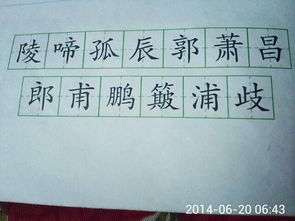 陵啼孤辰郭萧昌
郎甫鹏簸浦歧
2014-06-20 06:43